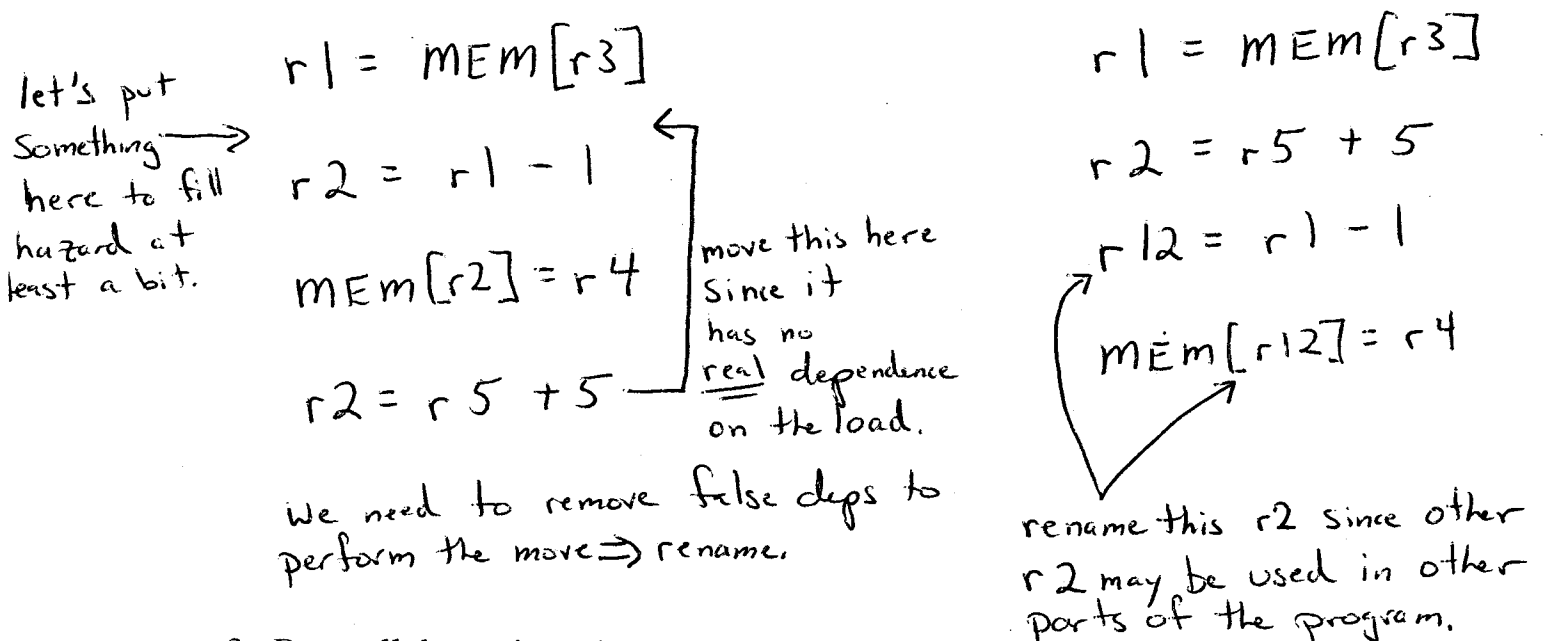 let's put
something
here to fill
hazard at
least a bit.
r1 = MEM[r3]
r2 = r1 - 1
MEM[r2] = r4
r2 = r5 + 5
move this here
since it
has no
real dependence
on the load.
we need to remove false deps to
perform the move ⇒ rename.
r1 = MEM[r3]
r2 = r5 + 5
r12 = r1 - 1
MEM[r12] = r4
rename this r2 since other
r2 may be used in other
parts of the program.